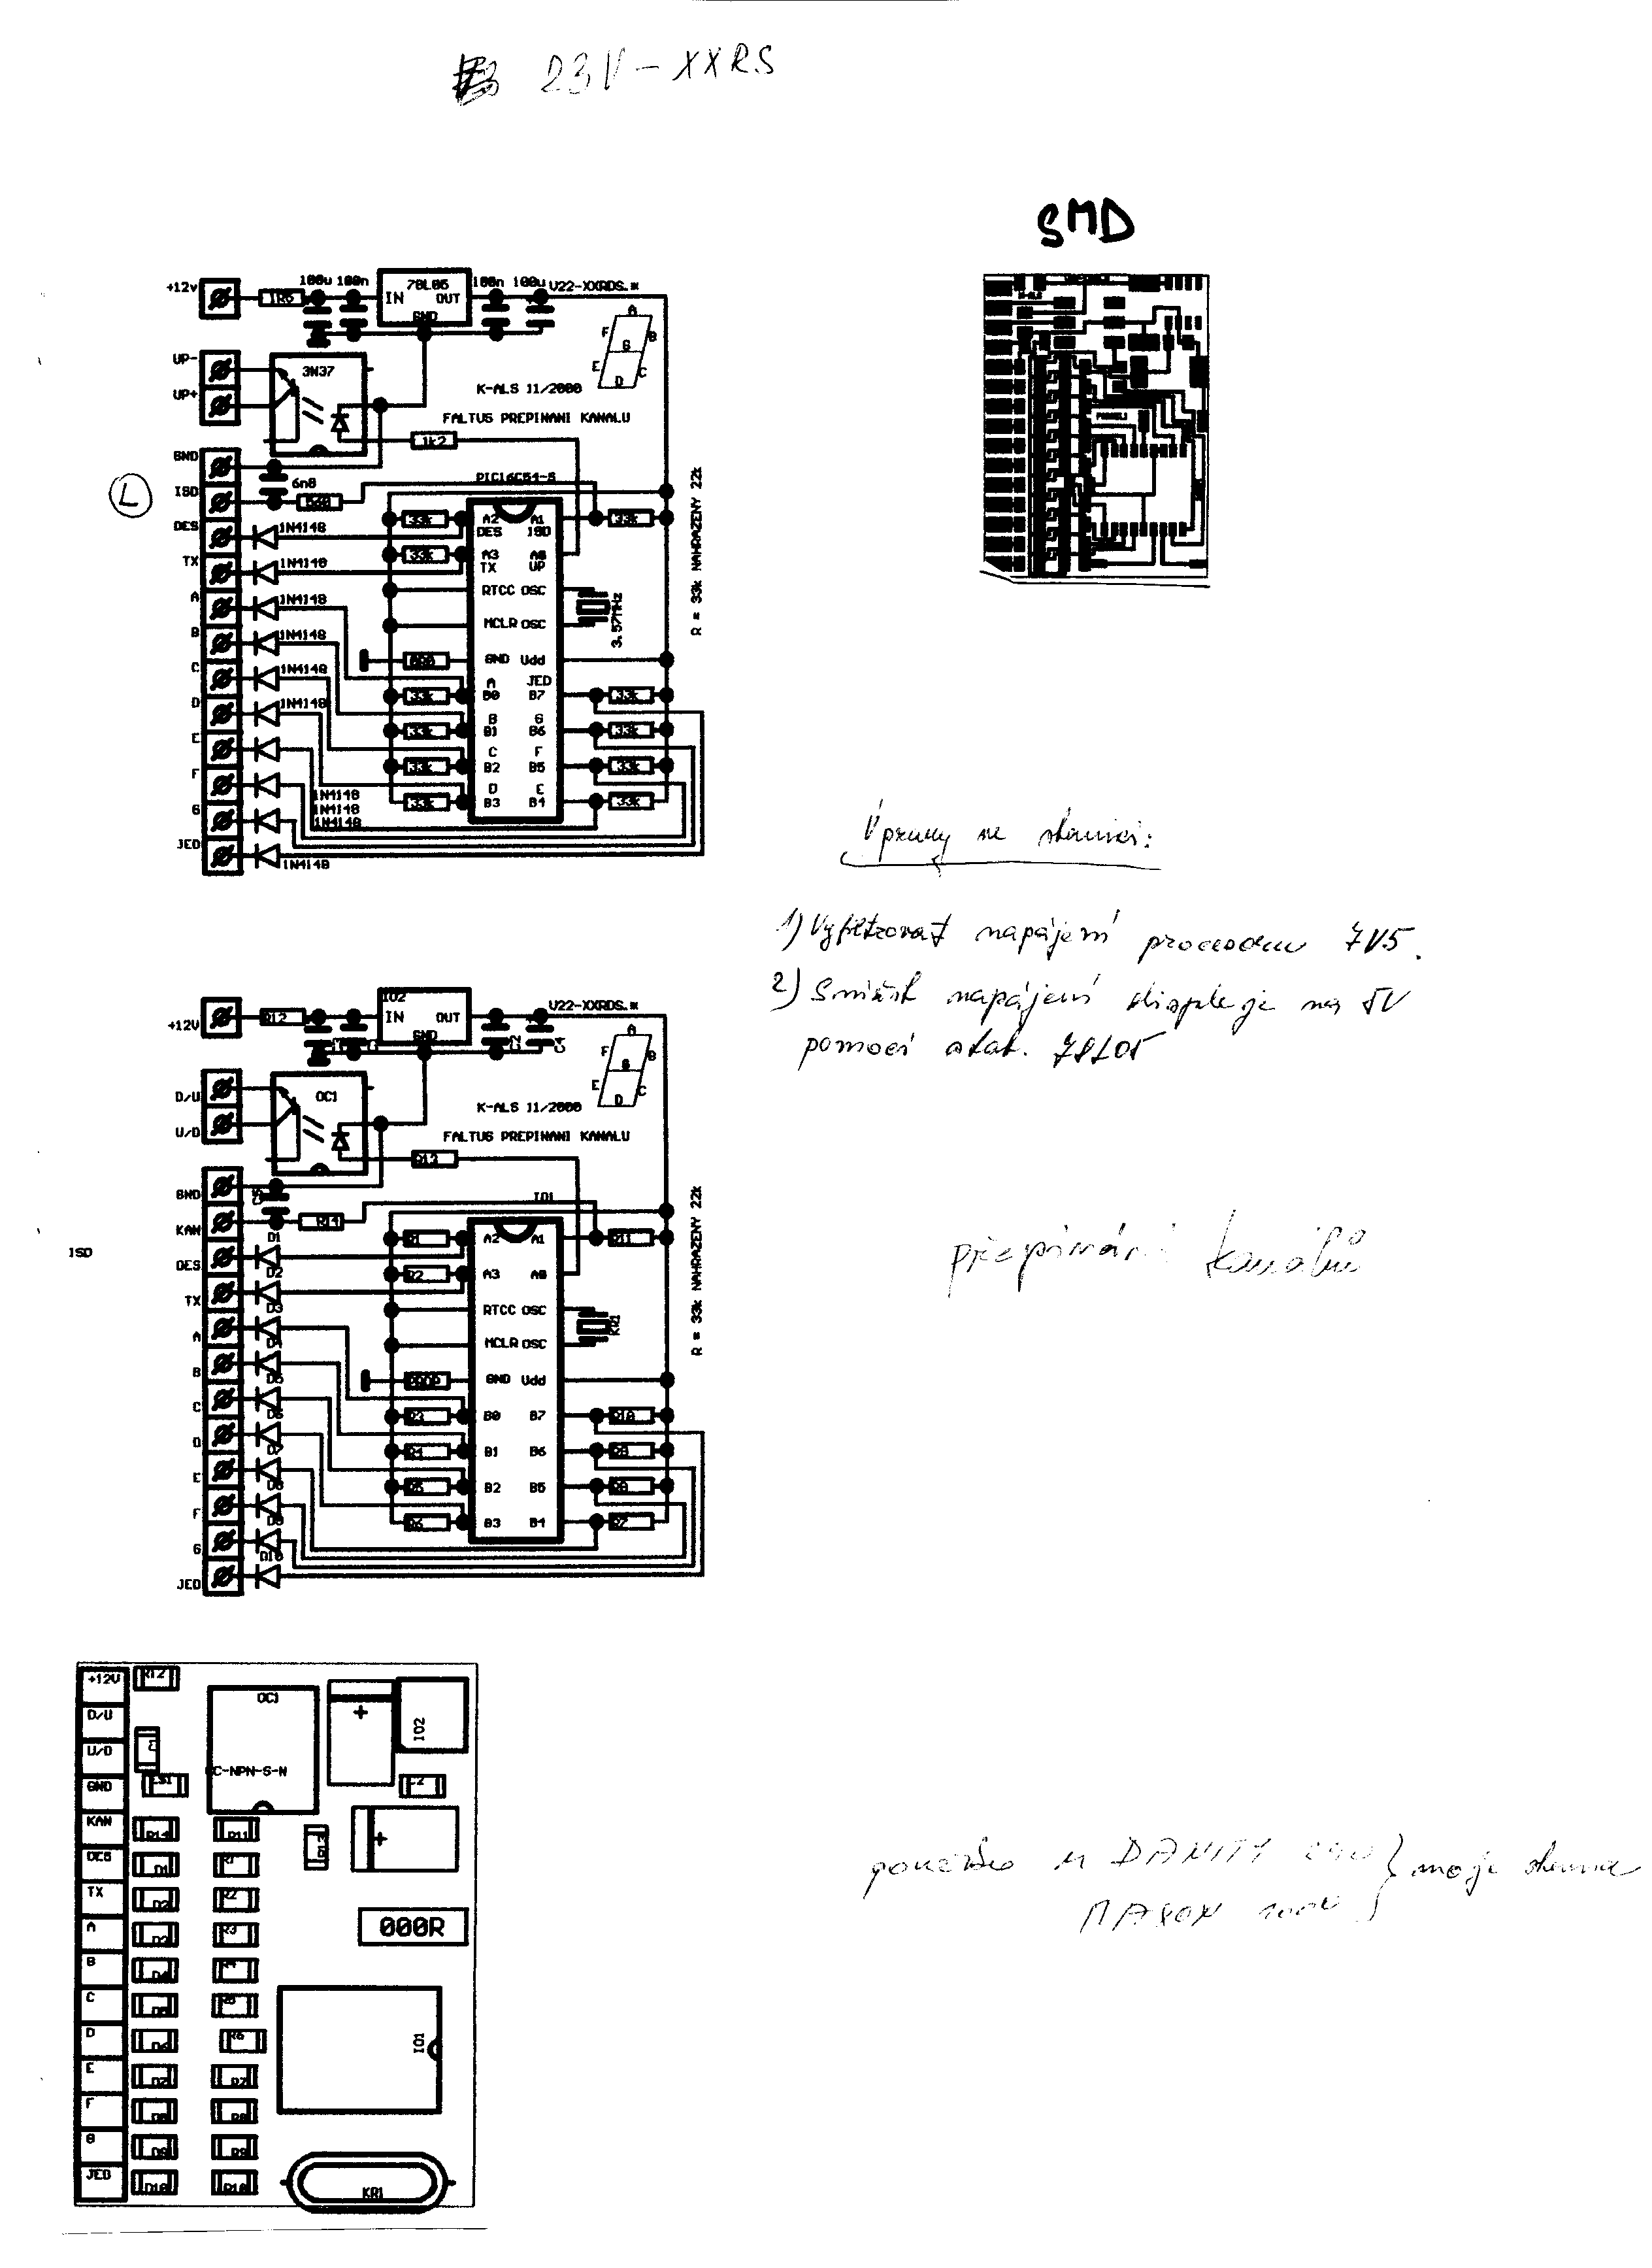 23V-XXRS
SMD
+12v
1R5
100u 100n
78L05
IN OUT
GND
100n 100u
V22-XXRDS.*
A
F B
G
E C
D
UP-
UP+
3N37
K-ALS 11/2000
FALTUS PREPINANI KANALU
1k2
GND
6n8
L
ISD
560
PIC16C54-S
DES
1N4148
33k
A2 A1
DES ISD
33k
TX
1N4148
33k
A3 A0
TX UP
A
1N4148
RTCC OSC
3.57MHz
B
1N4148
MCLR OSC
C
1N4148
GND Vdd
D
1N4148
A JED
33k
B0 B7
33k
E
B G
33k
B1 B6
33k
F
C F
33k
B2 B5
33k
G
1N4148
1N4148
1N4148
D E
33k
B3 B4
33k
JED
1N4148
R = 33k NAHRAZENY 22k
Úpravy ve stanici:
1) Vyfiltrovat napájení procesoru 7V5.
2) Snížit napájení displeje na 5V
pomocí stab. 78L05
+12V
R12
IO2
IN OUT
GND
C2 C4
V22-XXRDS.*
A
F B
G
E C
D
D/U
U/D
OC1
K-ALS 11/2000
FALTUS PREPINANI KANALU
R13
GND
KAN
R14
IO1
ISD
DES
D1
R1
A2 A1
R11
TX
D2
R2
A3 A0
A
D3
RTCC OSC
KR1
B
D4
MCLR OSC
C
D5
GND Vdd
D
D6
R3
B0 B7
R10
E
D7
R4
B1 B6
R9
F
D8
R5
B2 B5
R8
G
D9
R6
B3 B4
R7
JED
D10
R = 33k NAHRAZENY 22k
přepínání kanálů
+12V
R12
OC1
+
IO2
D/U
U/D
C-NPN-S-N
GND
C2
KAN
R14
R11
R13
+
DES
D1
R1
TX
D2
R2
A
D3
R3
000R
B
D4
R4
C
D5
R5
D
D6
R6
IO1
E
D7
R7
F
D8
R8
G
D9
R9
JED
D10
R10
KR1
použito u DANITY } moje stanice
MAXON